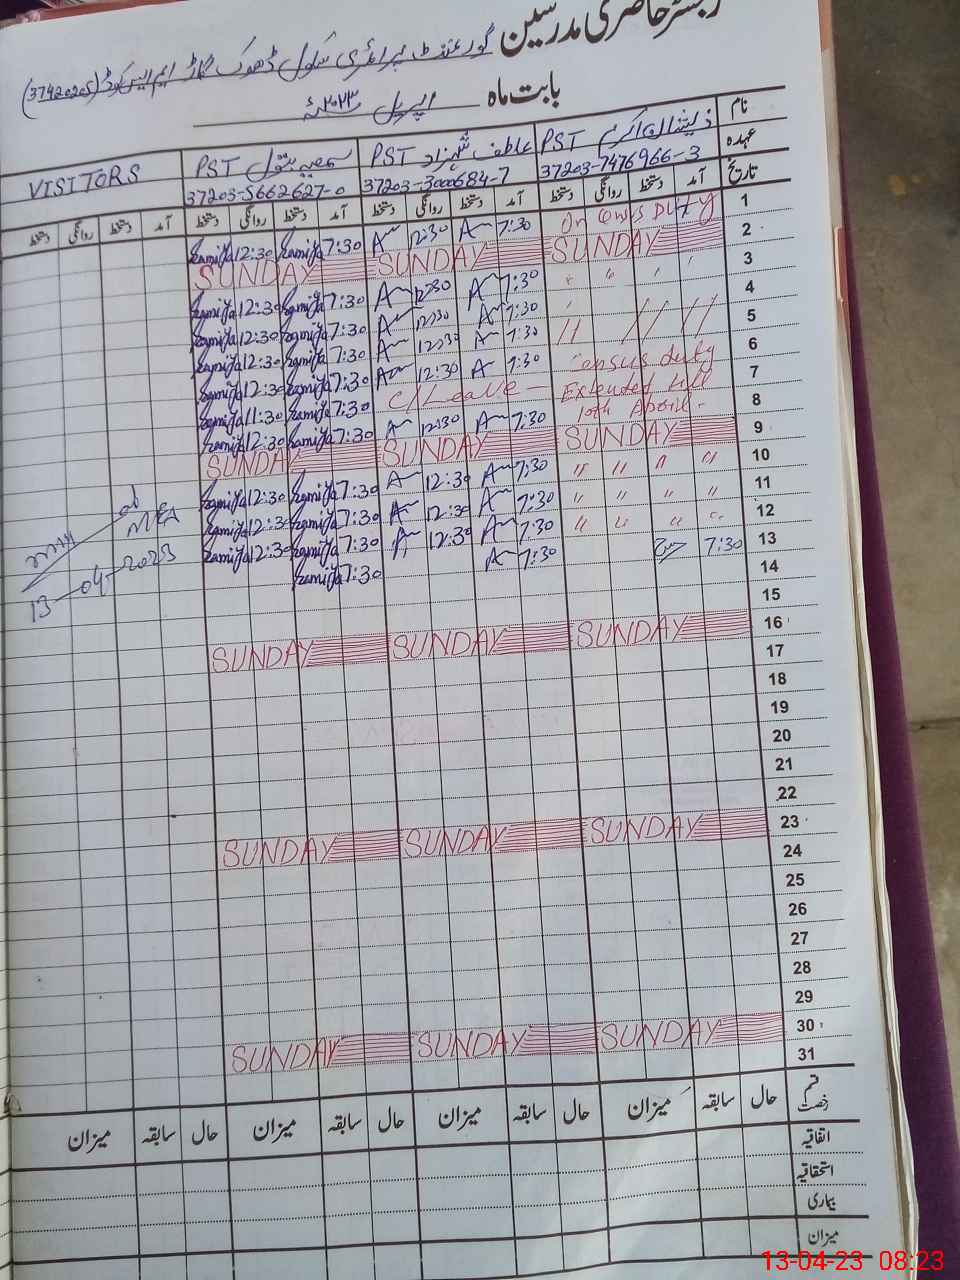 رجسٹر حاضری مدرسین
گورنمنٹ پرائمری سکول ڈھوک (37420205)
بابت ماہ اپریل ۲۰۲۳ء
نام PST عاطف شہزاد PST VISITORS
عہدہ 37203-7476966-3 37203-3000684-7 37203-5662627-0
تاریخ آمد دستخط روانگی دستخط آمد دستخط روانگی دستخط آمد دستخط روانگی دستخط آمد دستخط روانگی دستخط
1 On Census Duty 7:30 12:30 7:30 12:30
2 SUNDAY SUNDAY SUNDAY
3 " " " " 7:30 12:30 7:30 12:30
4 7:30 12:30 7:30 12:30
5 // // // 7:30 12:30 7:30 12:30
6 Census duty 7:30 12:30 7:30 12:30
7 Extended till C/Leave 7:30 11:30
8 10th April 7:30 12:30 7:30 12:30
9 SUNDAY SUNDAY SUNDAY
10 " " " " 7:30 12:30 7:30 12:30
11 " " " " 7:30 12:30 7:30 12:30
12 " " " " 7:30 12:30 7:30 12:30
13 7:30 7:30 7:30
MEA
13-04-2023
14
15
16 SUNDAY SUNDAY SUNDAY
17
18
19
20
21
22
23 SUNDAY SUNDAY SUNDAY
24
25
26
27
28
29
30 SUNDAY SUNDAY SUNDAY
31
قسم رخصت حال سابقہ میزان حال سابقہ میزان حال سابقہ میزان
اتفاقیہ
استحقاقیہ
بیماری
میزان
13-04-23 08:23